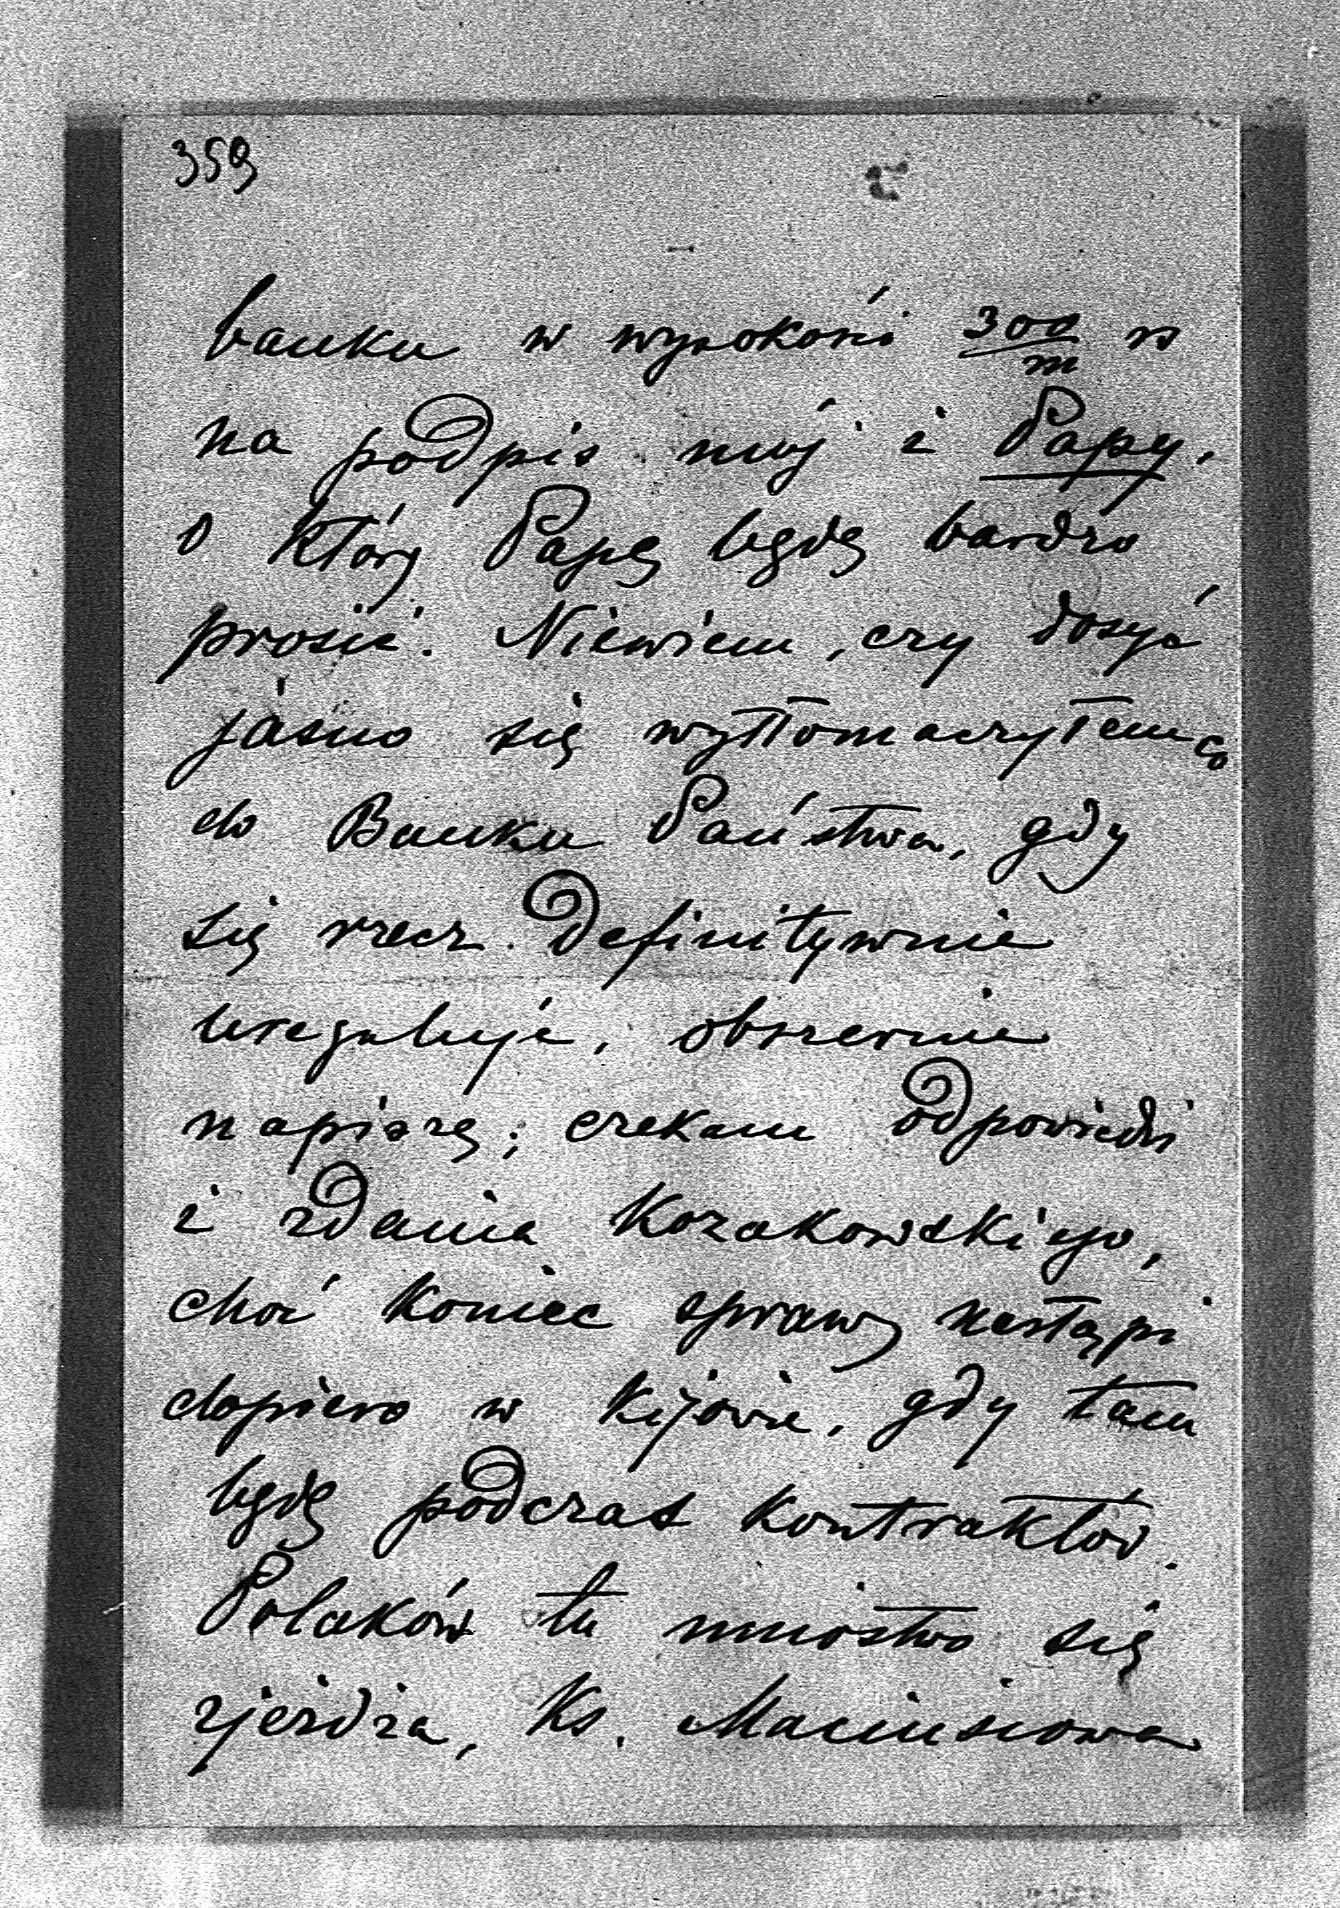 359
banku w wysokości 300/m rs
na podpis mój i Papy,
o który Papę będę bardzo
prosić. Niewiem, czy dosyć
jasno się wytłomaczyłem co
do Banku Państwa, gdy
się rzecz definitywnie
ureguluje, obszernie
napiszę; czekam odpowiedzi
i zdania Kozakowskiego,
choć koniec sprawy nastąpi
dopiero w Kijowie, gdy tam
będę podczas kontraktów.
Polaków tu mnóstwo się
zjeżdża, Ks. Maciusiowa